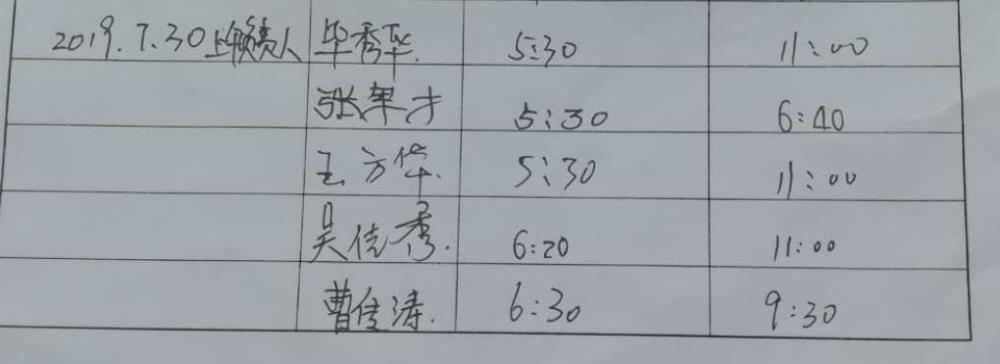 2019.7.30上午负责人 毕秀华. 5:30 11:00
张军才 5:30 6:40
王方华. 5:30 11:00
吴传秀. 6:20 11:00
曹传涛. 6:30 9:30